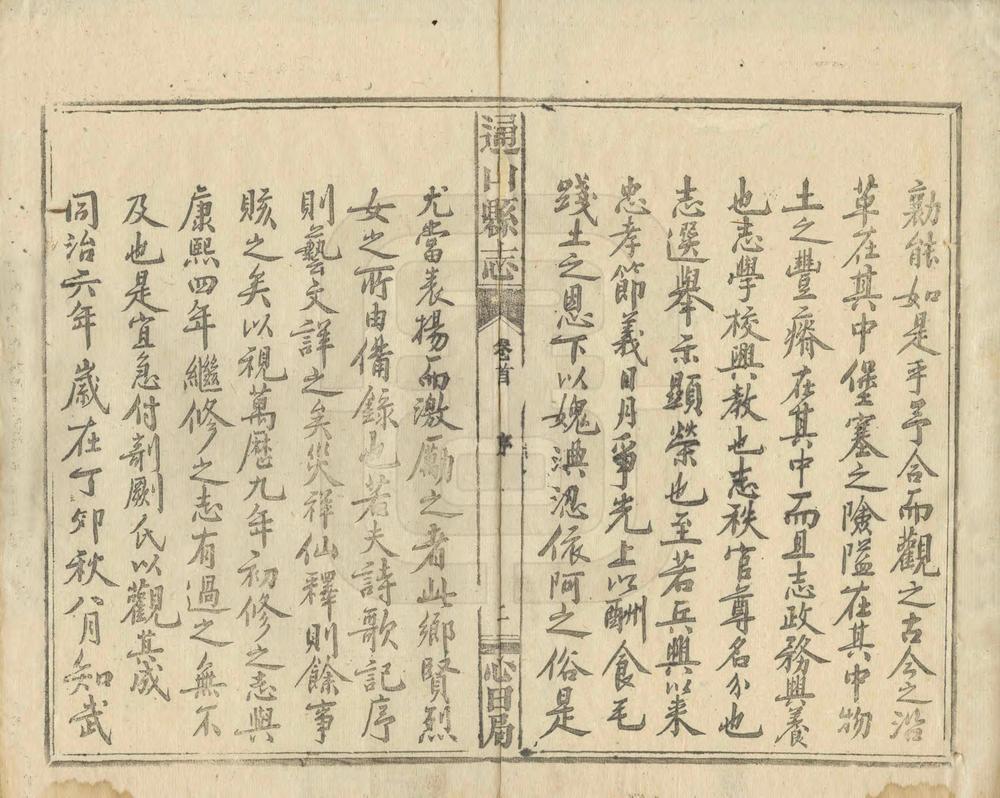 勷能如是乎予合而觀之古今之沿
革在其中堡塞之險隘在其中物
土之豐瘠在其中而且志政務興養
也志學校興教也志秩官尊名分也
志選舉示顯榮也至若兵興以来
忠孝節義日月爭先上以酬食毛
踐土之恩下以媿淟涊依阿之俗是
通山縣志
卷首
序
二
心田局
尤當表揚而激勵之者此鄉賢烈
女之所由備錄也若夫詩歌記序
則藝文詳之矣災祥仙釋則餘事
賅之矣以視萬歷九年初修之志與
康熙四年繼修之志有過之無不
及也是宜急付剞劂氏以觀其成
同治六年歲在丁卯秋八月知武